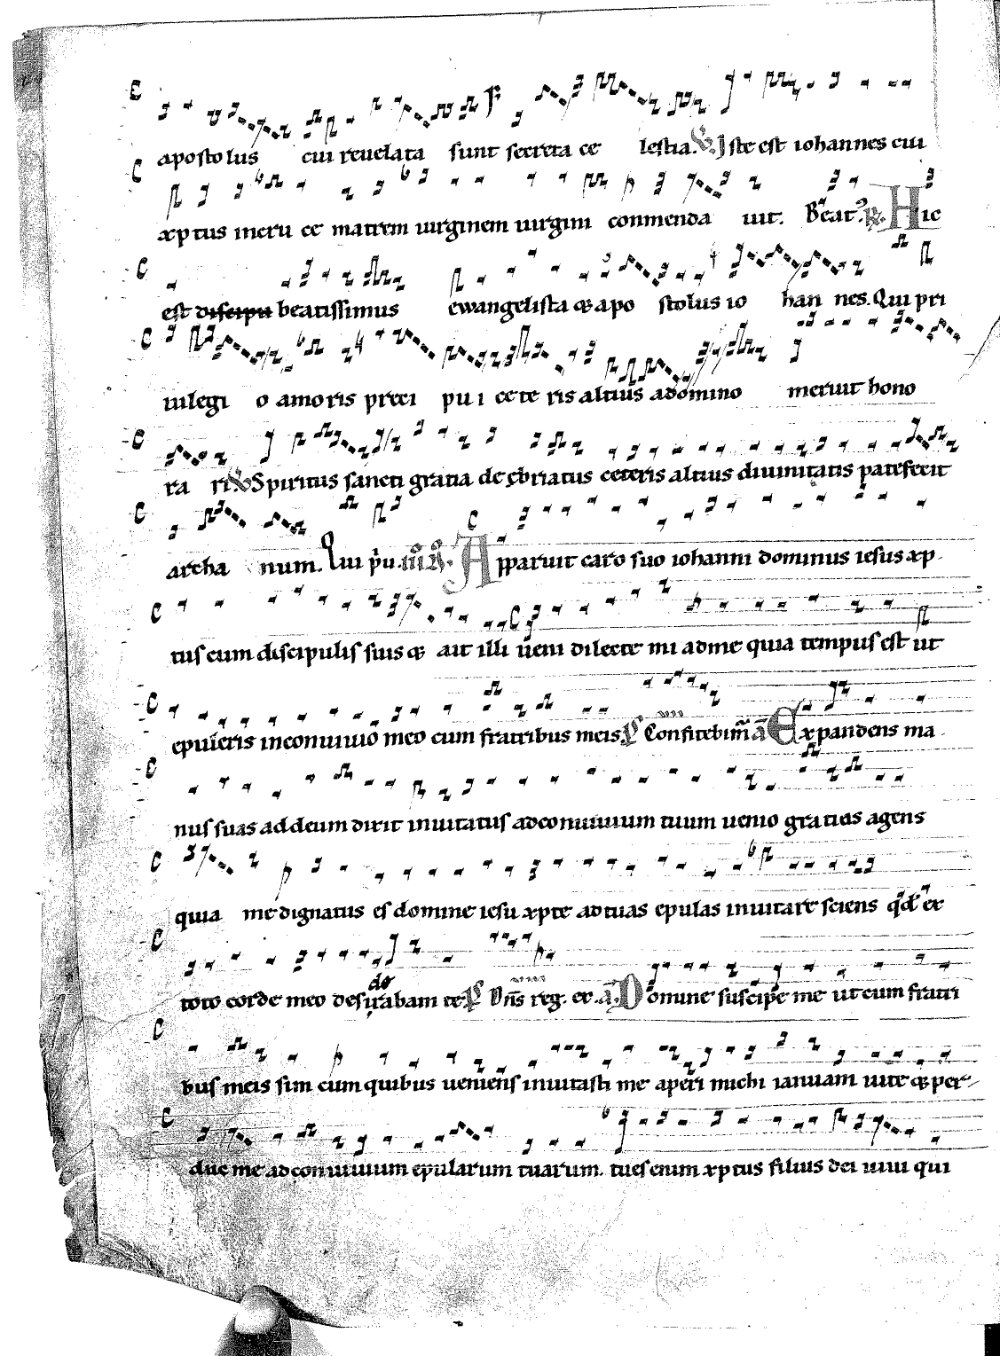 apostolus cui reuelata sunt secreta ce lestia. V. Iste est iohannes cui
xp̄tus in cru ce matrem uirginem uirgini conmenda uit. Beat9. R. Hic
est discipu beatissimus ewangelista & apo stolus io han nes. Qui pri
uilegi o amoris preci pu i ce te ris altius a domino meruit hono
ra ri. V. Spiritus sancti gratia debriatus ceteris altius diuinitatis patefecit
archa num. Qui pͥu. iii R. A. Apparuit caro suo iohanni dominus iesus xp
tus cum discipulis suis & ait illi ueni dilecte mi ad me quia tempus est ut
epuleris in conuiuio meo cum fratribus meis. P. Confitebim̄ A. Expandens ma
nus suas ad deum dixit inuitatus ad conuiuium tuum uenio gratias agens
quia me dignatus es domine iesu xp̄te ad tuas epulas inuitare sciens qd̄ ex
toto corde meo desiderabam te. P. Dn̄s reg. ex. A. Domine suscipe me ut cum fratri
bus meis sim cum quibus ueniens inuitasti me aperi michi ianuam uite & per-
duc me ad conuiuium epularum tuarum. tu es enim xp̄tus filius dei uiui qui